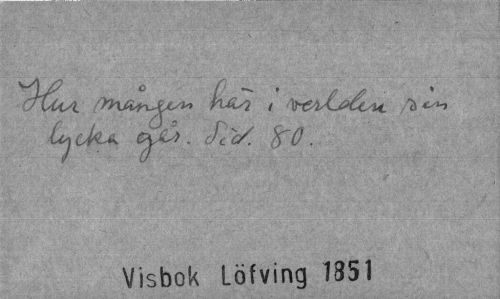 Hur mången här i verlden sin
lycka gör. Sid. 80.
Visbok Löfving 1851